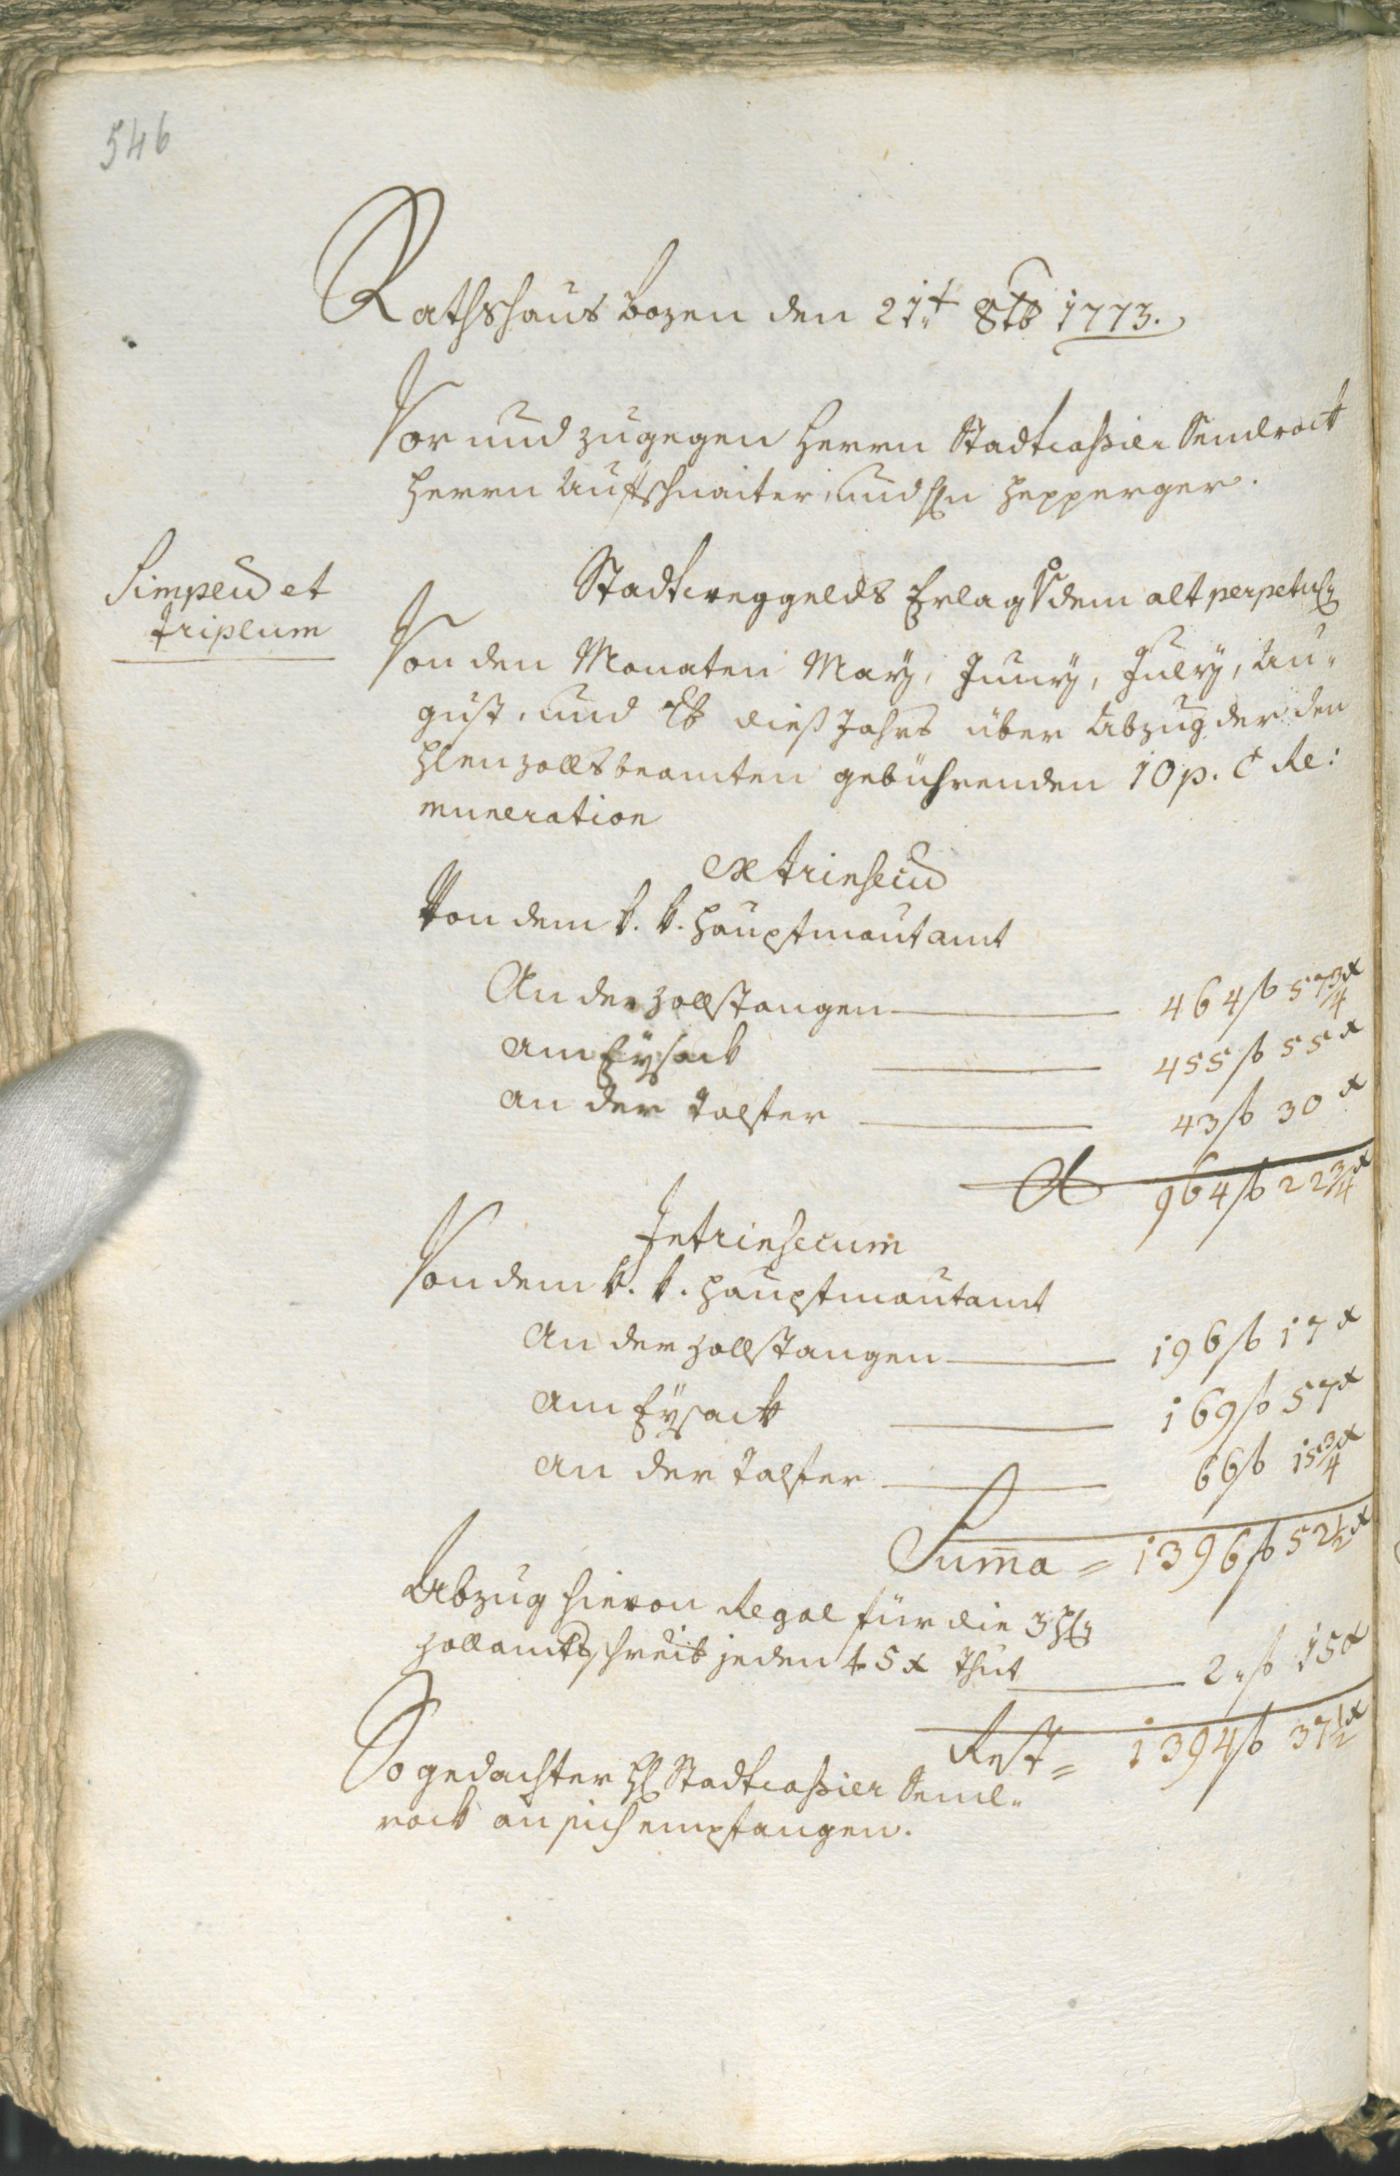 546
Rathshaus Bozen den 21.t 8tb 1773.
Vor und zugegen Herrn Stadtcassier Semlrock
Herrn Aufschnaiter, und Hn Hepperger.
Simplum et
triplum
Stadtweggelds Erlag dem alt perpetuo
Von den Monaten May, Juny, July, Au-
gust, und 7b dieß Jahrs über Abzug der den
Hlen Zollsbeamten gebührenden 10 p. Ct Re:
muneration
extrinsecum
Von dem k. k. Hauptmautamt
An der Zollstangen 464 f 57 3/4 x
am Eysack 455 f 55 x
an der Talfer 43 f 30 x
964 f 22 3/4 x
Intrinsecum
Von dem k. k. Hauptmautamt
An der Zollstangen 196 f 17 x
am Eysack 169 f 57 x
an der Talfer 66 f 15 3/4 x
Suma = 1396 f 52 1/2 x
Abzug hievon Regal für die 3 H
Zollamtsschreib jeden 45 x thut 2 f 15 x
Rest = 1394 f 37 1/2 x
So gedachter H Stadtcassier Seml-
rock an sich empfangen.